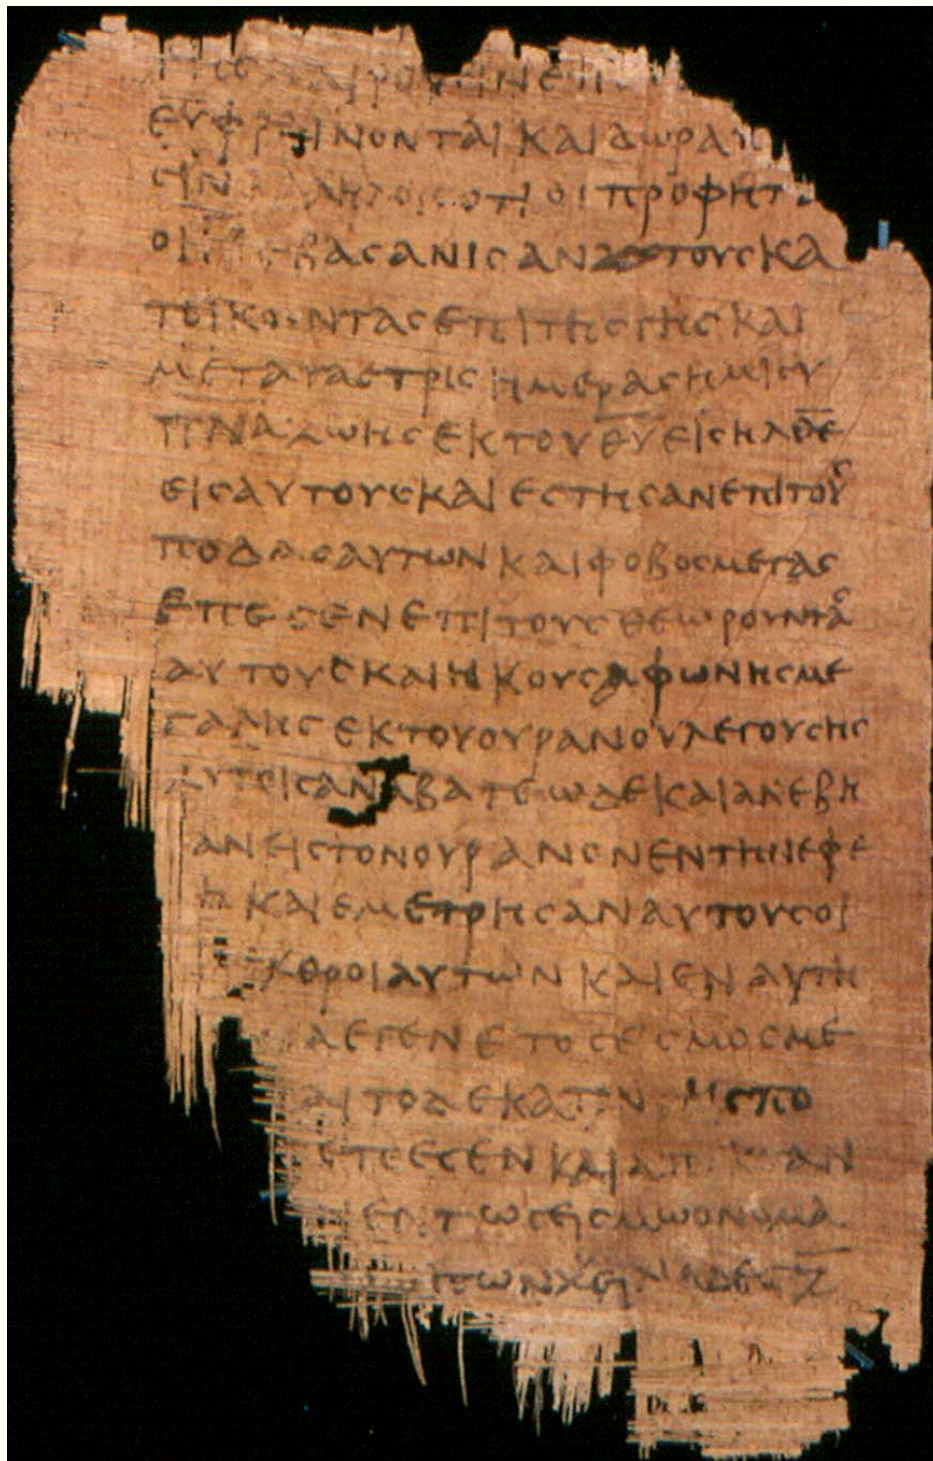 ΧΑΙΡΟΥϹΙΝ ΕΠ
ΕΥΦΡΑΙΝΟΝΤΑΙ ΚΑΙ ΔΩΡΑ
ϹΙΝ ΑΛΛΗΛΟΙϹ ΟΤΙ ΟΙ ΠΡΟΦΗΤΑ
ΟΙ ΕΒΑϹΑΝΙϹΑΝ ΤΟΥϹ ΚΑ
ΤΟΙΚΟΥΝΤΑϹ ΕΠΙ ΤΗϹ ΓΗϹ ΚΑΙ
ΜΕΤΑ ΤΑϹ ΤΡΙϹ ΗΜΕΡΑϹ ΗΜΙϹΥ
Π̅Ν̅Α̅ ΖΩΗϹ ΕΚ ΤΟΥ Θ̅Υ̅ ΕΙϹΗΛΘΕ̅
ΕΙϹ ΑΥΤΟΥϹ ΚΑΙ ΕϹΤΗϹΑΝ ΕΠΙ ΤΟΥϹ
ΠΟΔΑϹ ΑΥΤΩΝ ΚΑΙ ΦΟΒΟϹ ΜΕΓΑϹ
ΕΠΕϹΕΝ ΕΠΙ ΤΟΥϹ ΘΕΩΡΟΥΝΤΑϹ
ΑΥΤΟΥϹ ΚΑΙ ΗΚΟΥϹΑ ΦΩΝΗϹ ΜΕ
ΓΑΛΗϹ ΕΚ ΤΟΥ ΟΥΡΑΝΟΥ ΛΕΓΟΥϹΗϹ
ΑΥΤΟΙϹ ΑΝΑΒΑΤΕ ΩΔΕ ΚΑΙ ΑΝΕΒΗ
ΑΝ ΕΙϹ ΤΟΝ ΟΥΡΑΝΟΝ ΕΝ ΤΗ ΝΕΦΕ
Η ΚΑΙ ΕΜΕΤΡΗϹΑΝ ΑΥΤΟΥϹ ΟΙ
ΧΘΡΟΙ ΑΥΤΩΝ ΚΑΙ ΕΝ ΑΥΤΗ
Α ΕΓΕΝΕΤΟ ϹΕΙϹΜΟϹ ΜΕ
ΑΙ ΤΟ ΔΕΚΑΤΟΝ ΤΗϹ ΠΟ
ΕΠΕϹΕΝ ΚΑΙ ΑΠΕΚΤΑΝ
ΕΝ ΤΩ ϹΕΙϹΜΩ ΟΝΟΜΑ
ΠΩΝ ΧΕΙΛΙΑΔΕϹ Ζ̅